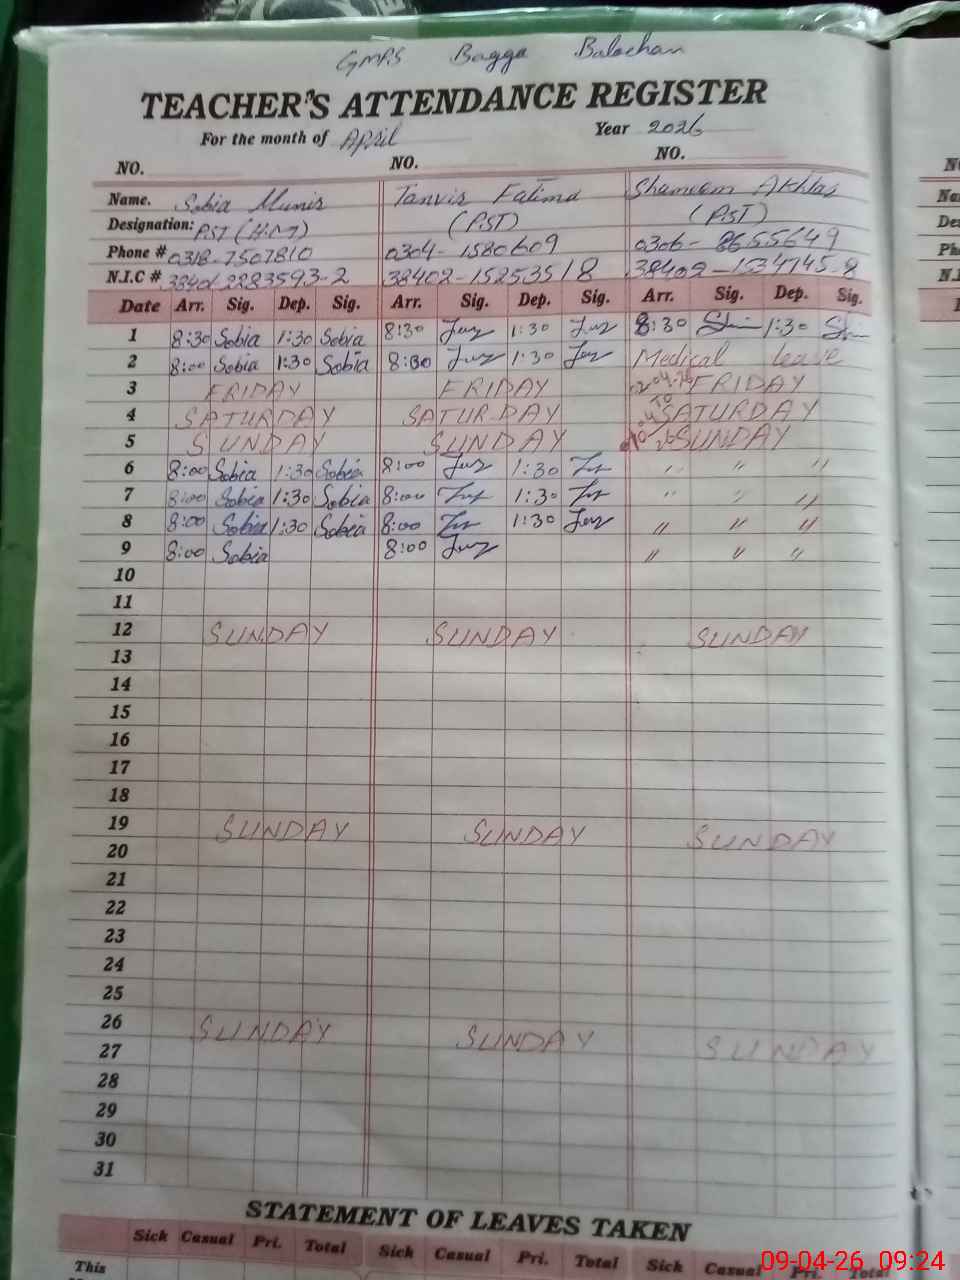 GMPS Bagga Balochan
TEACHER'S ATTENDANCE REGISTER
For the month of April Year 2026
NO. NO. NO.
Name. Sobia Munir Tanvir Fatima Shameem Akhtar
Designation: PST (H.M) (PST) (PST)
Phone # 0318-7507810 0304-1580609 0306-8655649
N.I.C # 38402-1525351 8
Date Arr. Sig. Dep. Sig. Arr. Sig. Dep. Sig. Arr. Sig. Dep. Sig.
1 8:30 Sobia 1:30 Sobia 8:30 1:30 8:30 1:30
2 8:00 Sobia 1:30 Sobia 8:00 1:30 Medical leave
3 FRIDAY FRIDAY FRIDAY
4 SATURDAY SATURDAY TO SATURDAY
5 SUNDAY SUNDAY SUNDAY
6 8:00 Sobia 1:30 Sobia 8:00 1:30 " " "
7 8:00 Sobia 1:30 Sobia 8:00 1:30 " " "
8 8:00 Sobia 1:30 Sobia 8:00 1:30 " " "
9 8:00 Sobia 8:00 " " "
10
11
12 SUNDAY SUNDAY SUNDAY
13
14
15
16
17
18
19 SUNDAY SUNDAY SUNDAY
20
21
22
23
24
25
26 SUNDAY SUNDAY SUNDAY
27
28
29
30
31
STATEMENT OF LEAVES TAKEN
Sick Casual Pri. Total Sick Casual Pri. Total Sick Casual Pri. Total
This
09-04-26 09:24